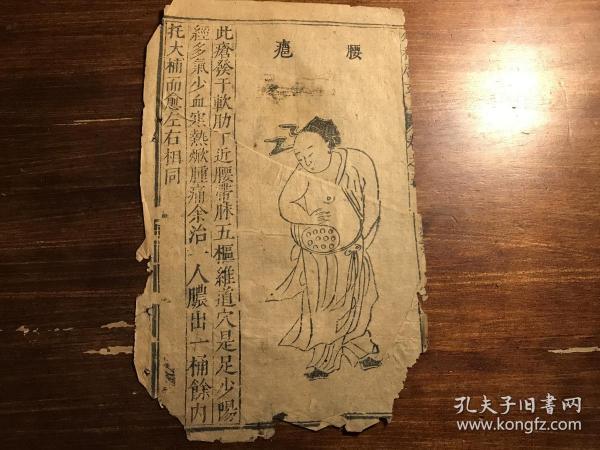 腰疽
此瘡發于軟肋下近腰帶脉五樞維道穴是足少陽
經多氣少血寒熱㾕腫痛余治一人膿出一桶餘内
托大補而愈左右相同
孔夫子旧书网
www.kongfz.com